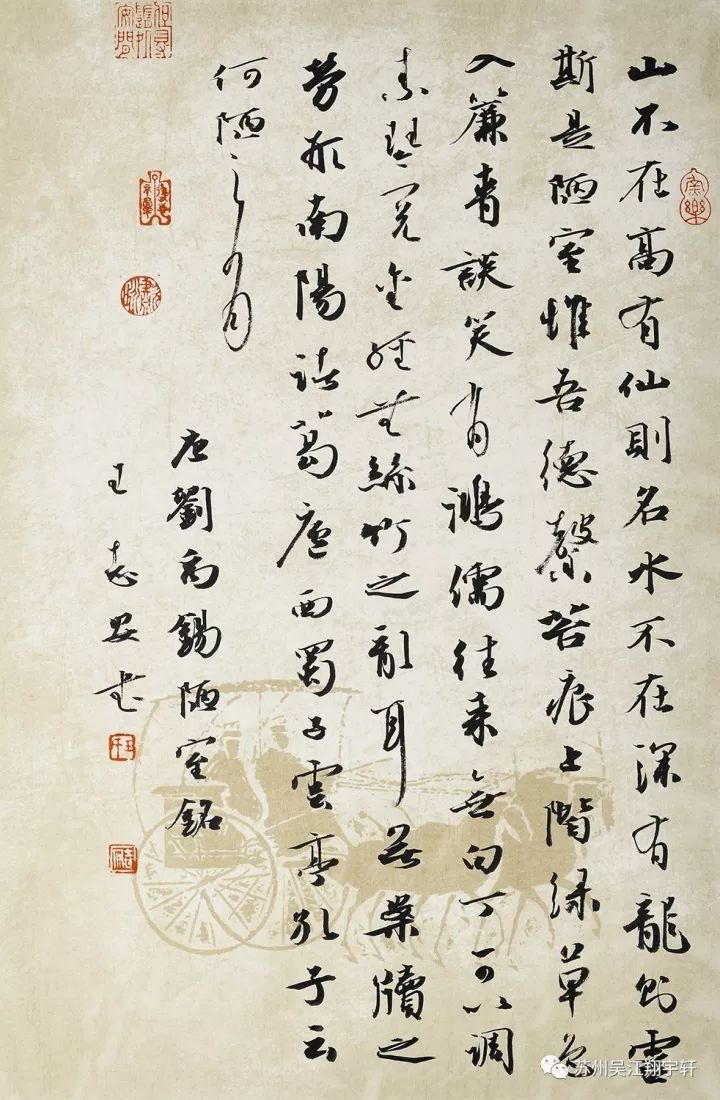 山不在高有仙則名水不在深有龍則靈
斯是陋室惟吾德馨苔痕上階綠草色
入簾青談笑有鴻儒往來無白丁可以調
素琴閱金經無絲竹之亂耳無案牘之
勞形南陽諸葛廬西蜀子雲亭孔子云
何陋之有
唐劉禹錫陋室銘
王志書
苏州吴江翔宇轩